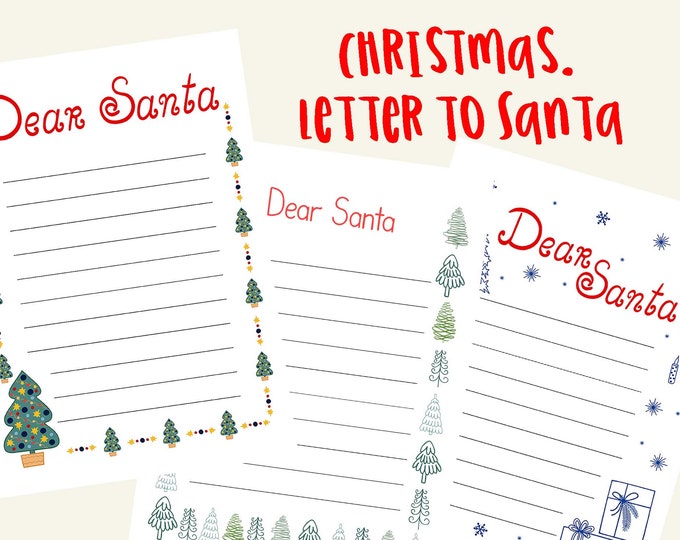 Christmas.
Letter to Santa
Dear Santa
Dear Santa
Dear
Santa